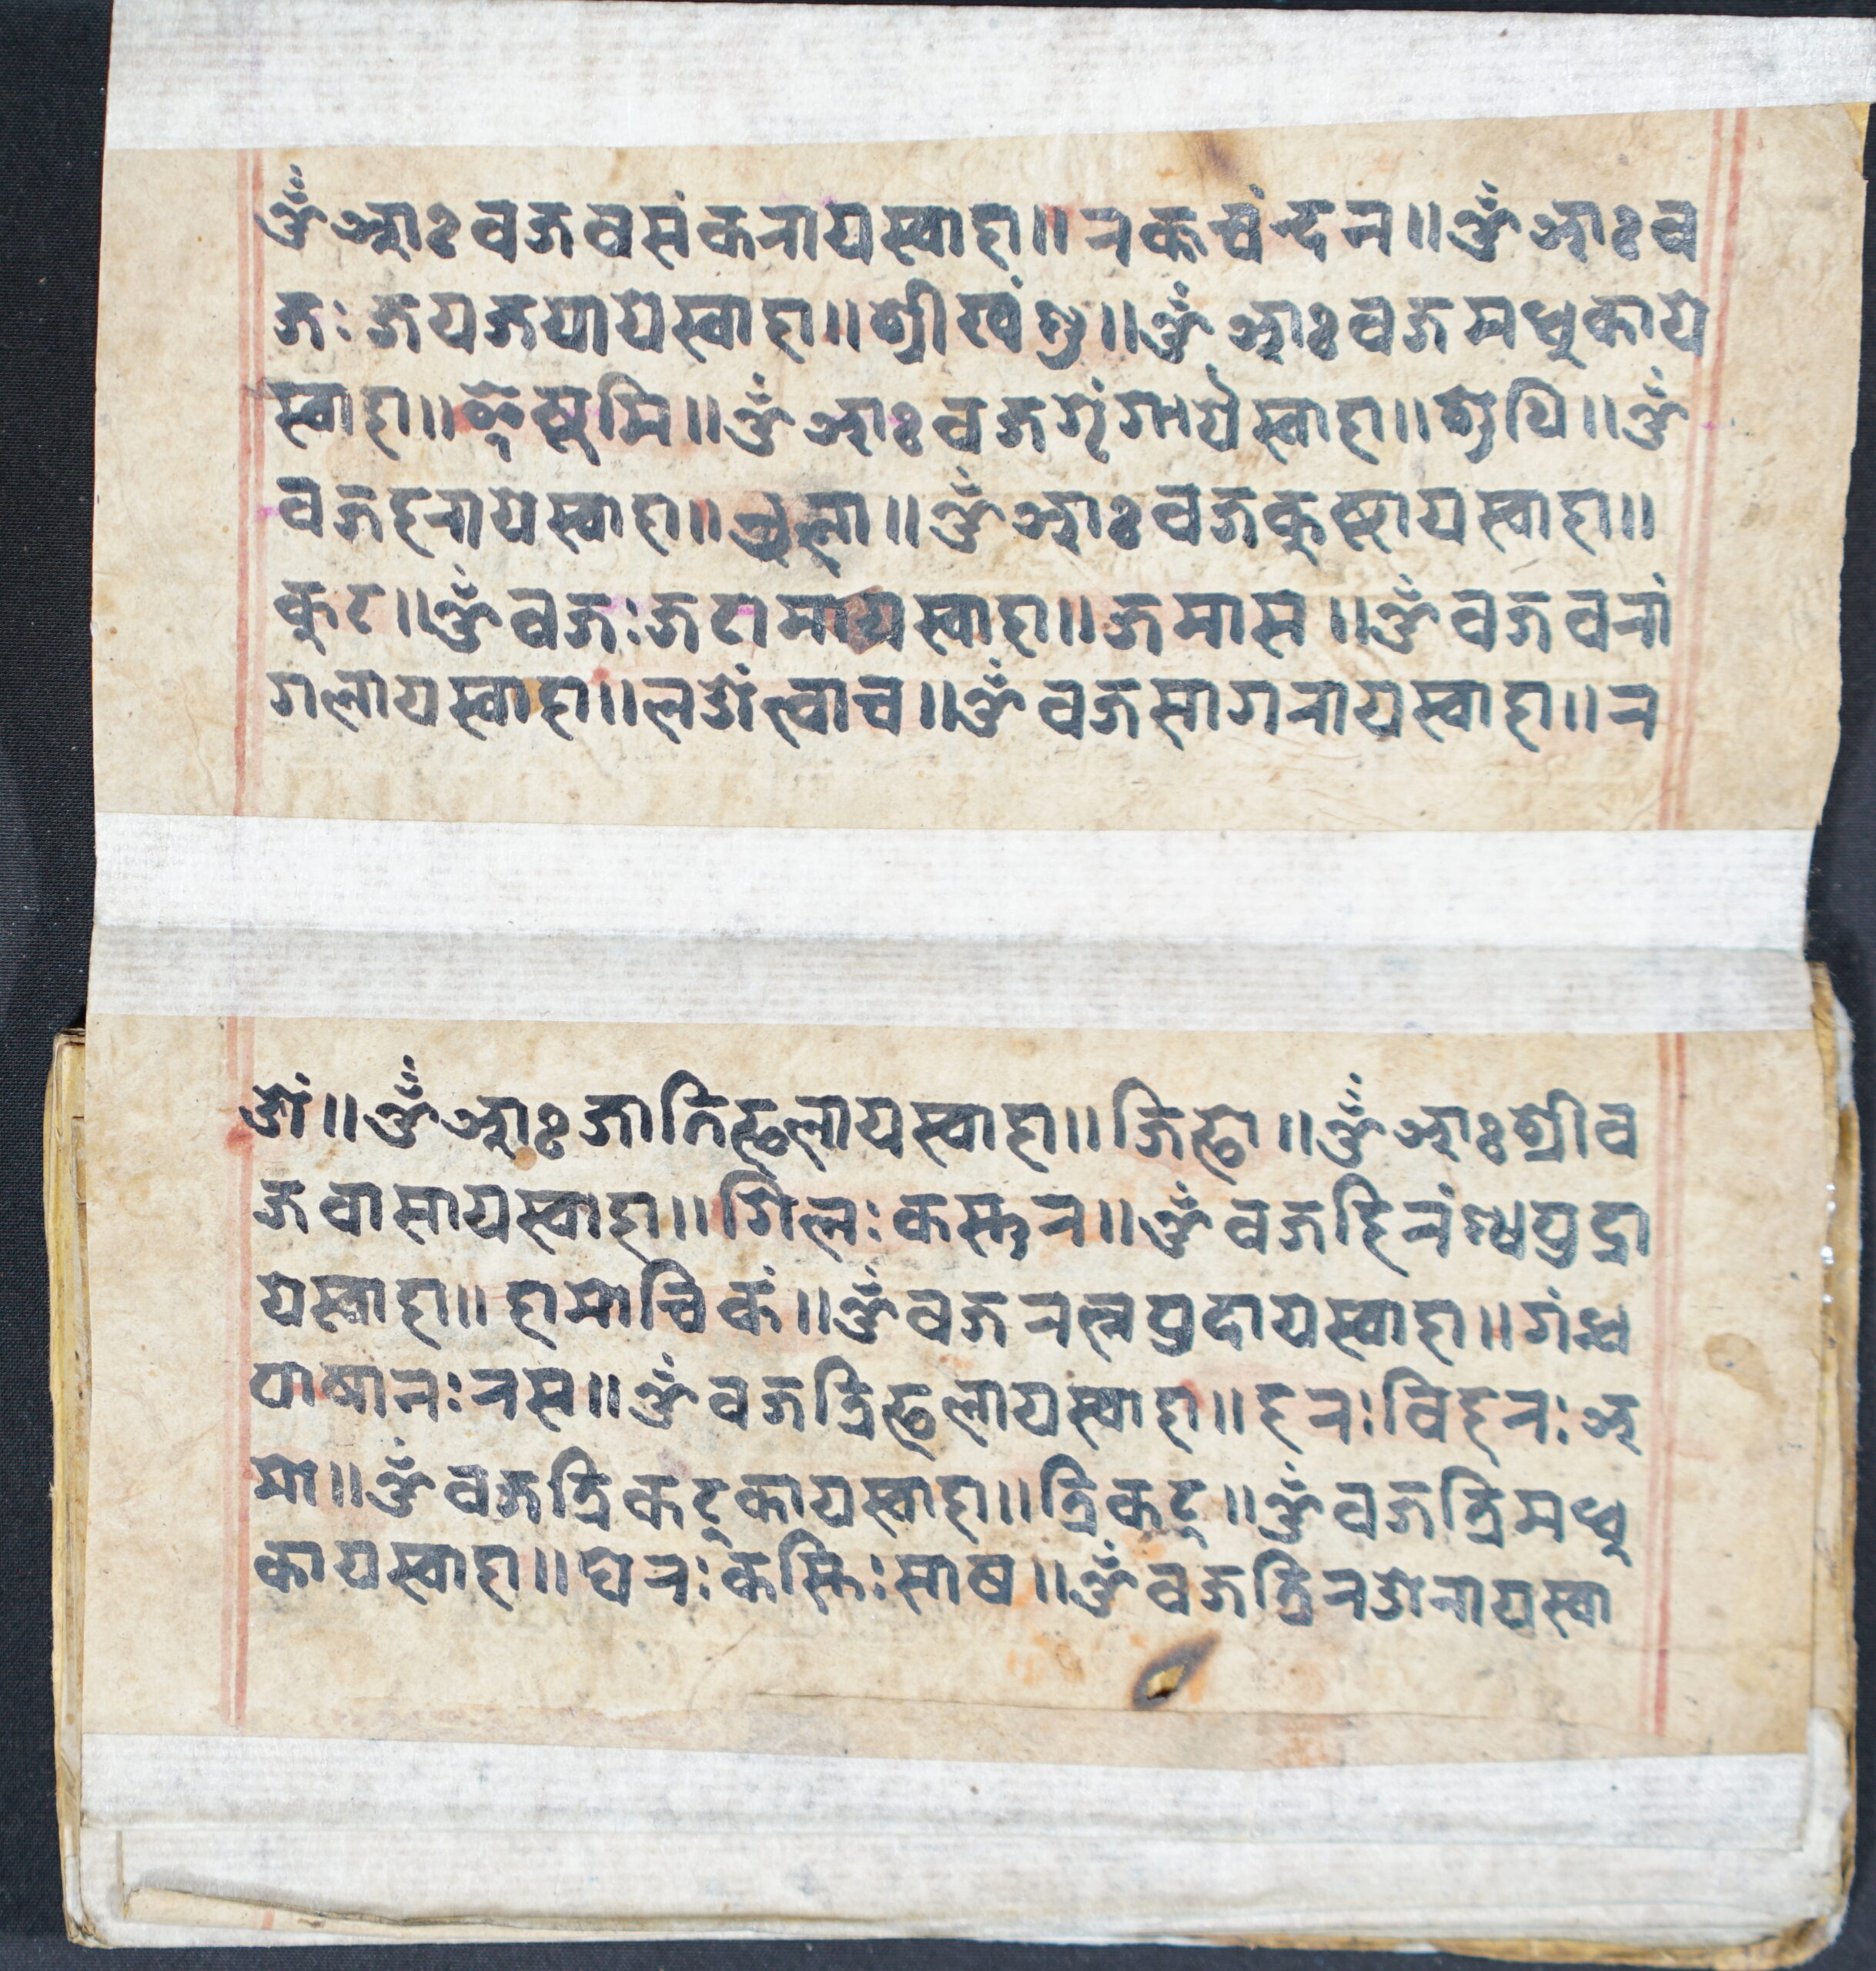 ॐ आः वज्र वसंकराय स्वाहा ॥ रक्तचंन्दन ॥ ॐ आः व
ज्रः जय जयाये स्वाहा ॥ श्रीखंण्ड ॥ ॐ आः वज्र मधुकाये
स्वाहा ॥ ॥ ॐ आः वज्र शृंगायै स्वाहा ॥ ॥ ॐ
वज्र हराये स्वाहा ॥ ॥ ॐ आः वज्र कुष्ठाय स्वाहा ॥
कुट ॥ ॐ वज्रः जटामायाय स्वाहा ॥ जमास ॥ ॐ वज्र वरां
गलाय स्वाहा ॥ लओंत्वाच ॥ ॐ वज्र सागराय स्वाहा ॥ ल
ओं ॥ ॐ आः जातिफलाय स्वाहा ॥ जिफो ॥ ॐ आः श्रीव
ज्र वासाय स्वाहा ॥ गिलः कस्तुर ॥ ॐ वज्र हिरंण्यप्रदा
ये स्वाहा ॥ हामोचिकं ॥ ॐ वज्र रत्नप्रदाय स्वाहा ॥ गंध
पाषानः नस ॥ ॐ वज्र त्रिफलाय स्वाहा ॥ हलः विहलः अ
मो ॥ ॐ वज्र त्रिकटुकाय स्वाहा ॥ त्रिकटु ॥ ॐ वज्र त्रिमधु
काय स्वाहा ॥ घेलः कस्तिः साष ॥ ॐ वज्र स्वा